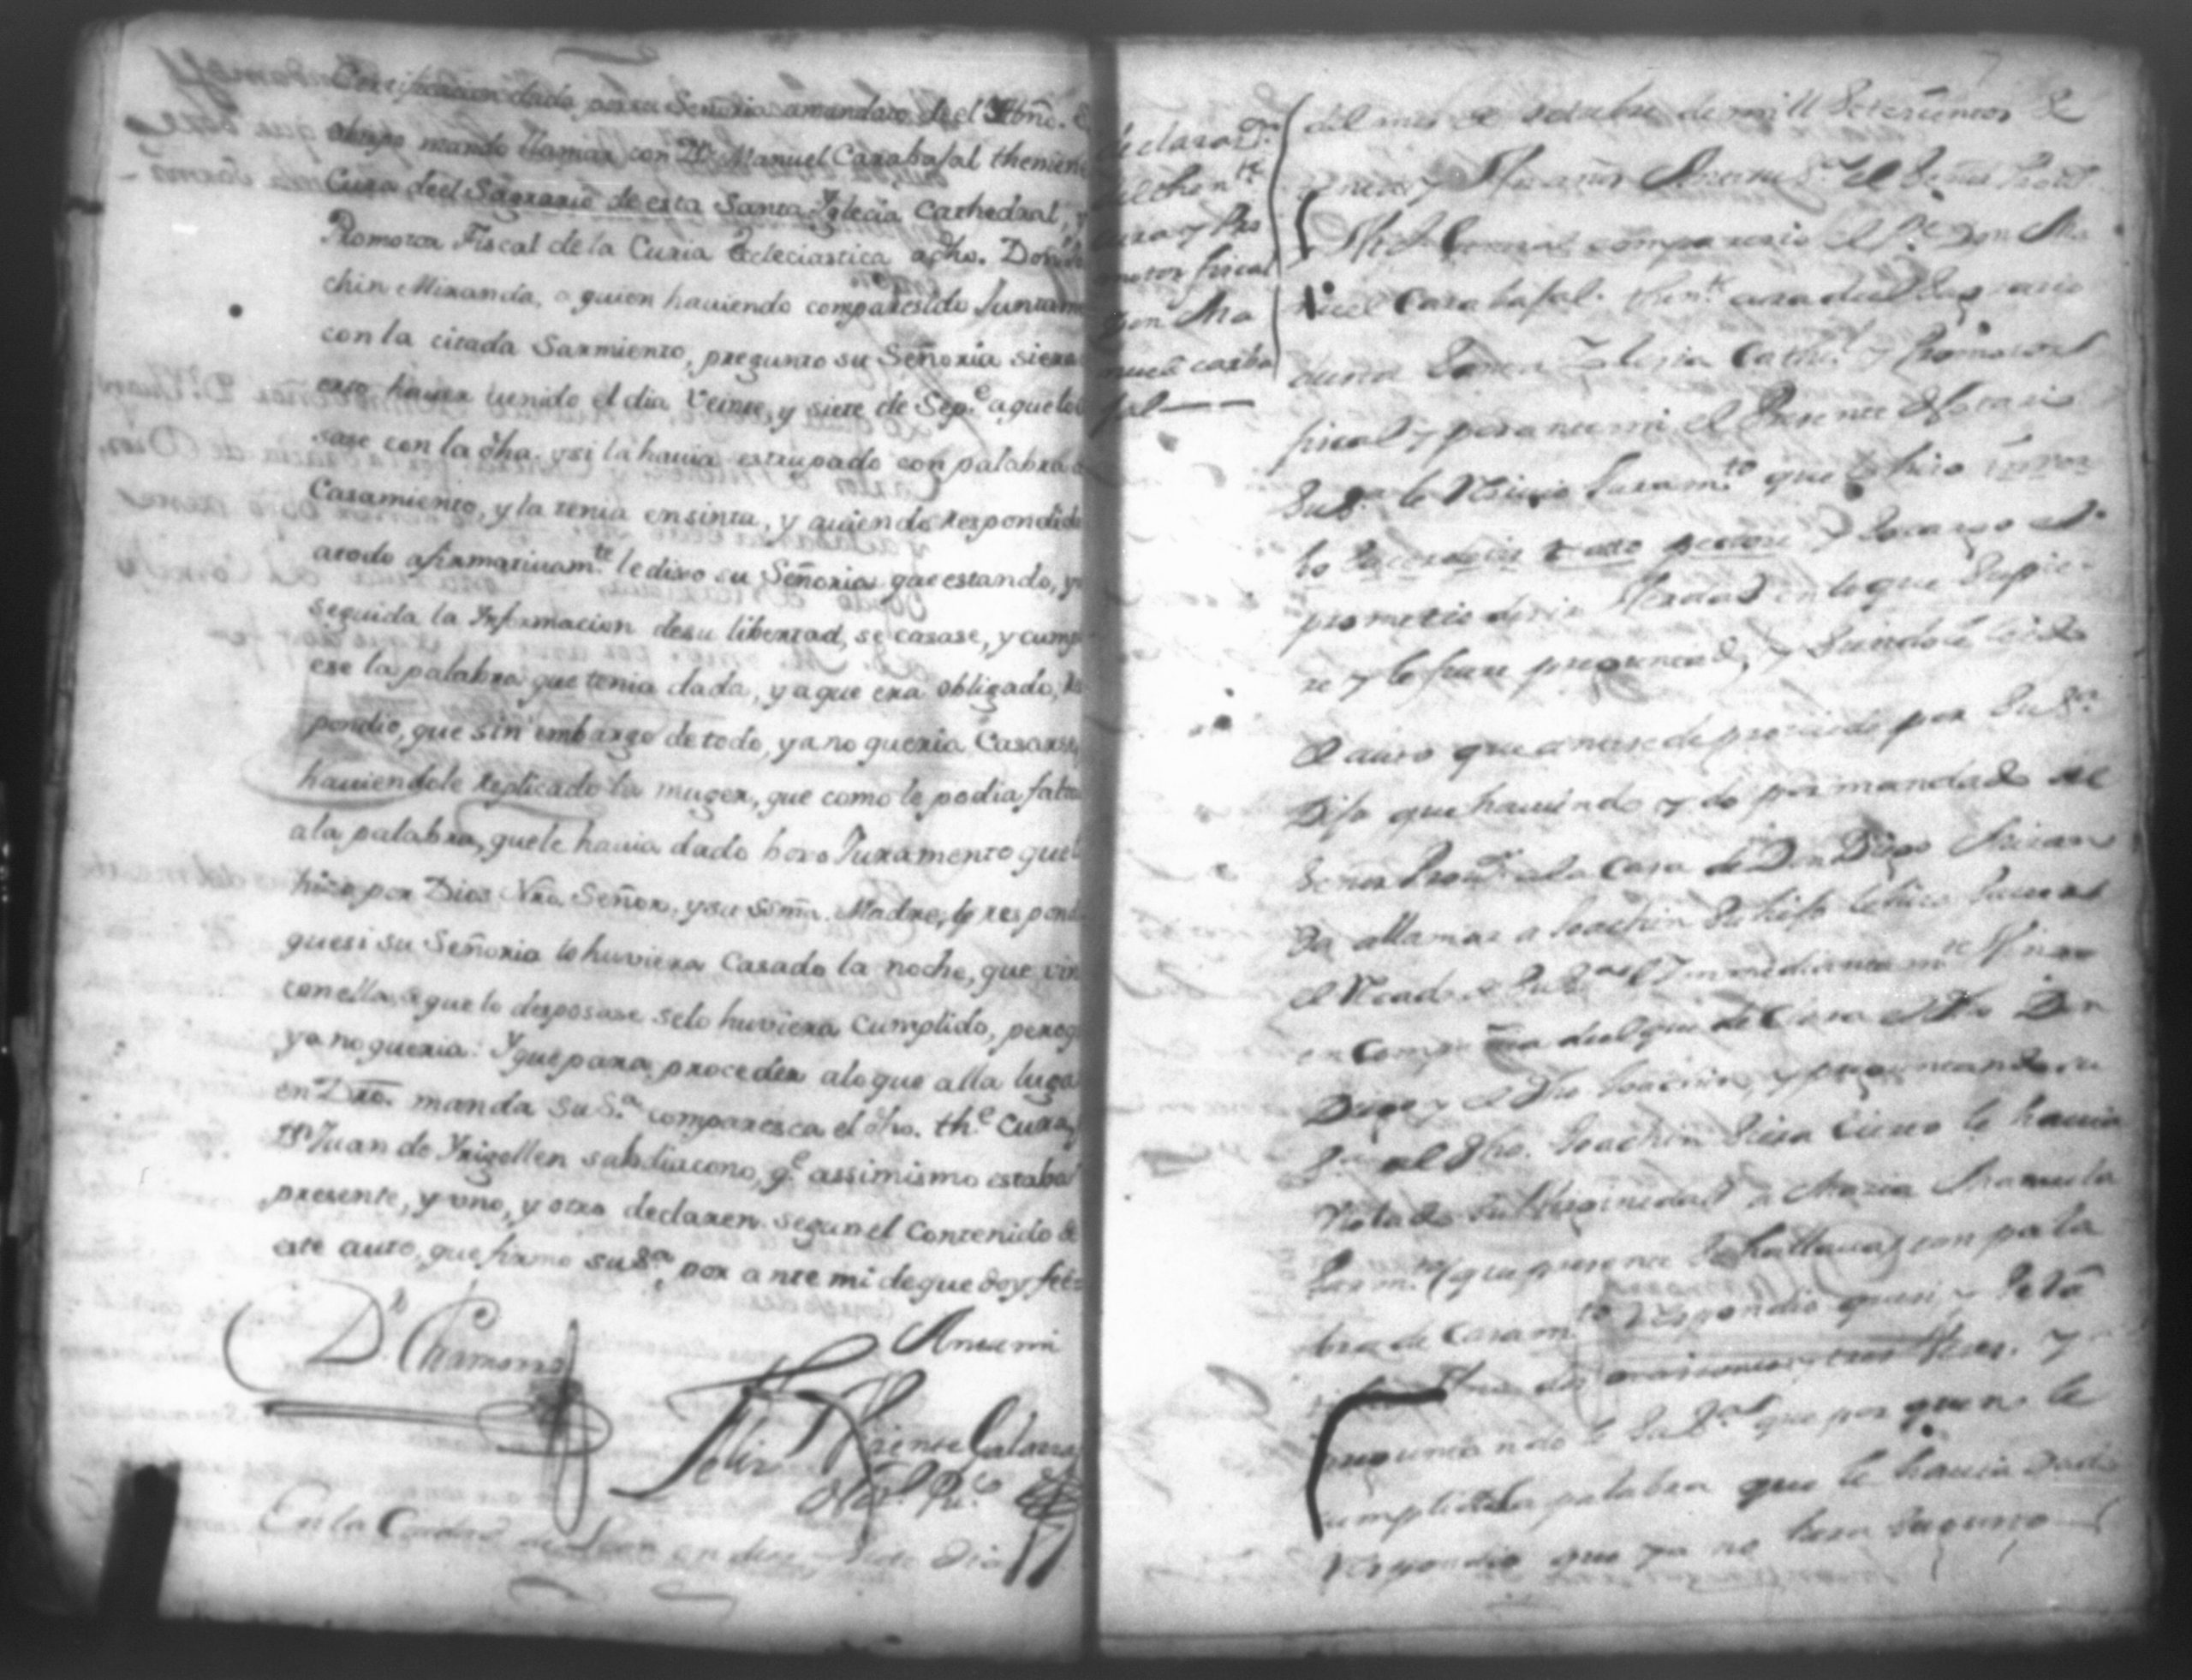 Certificacion dada para su Señoria amandato de el Ylltmo. S
obispo mando llamar con Dn. Manuel Carabajal thenien
Cura deel Sagrario de esta Santa Yglecia Cathedral, y
Promotor Fiscal de la Curia Ecleciastica a dho. Don
chin Miranda, a quien haviendo comparesido Juntam
con la citada Sarmiento, pregunto su Señoria siera
erto haver venido el dia Veinte, y siete de Sep.e a que le
sase con la dha. y si la havia estrupado con palabra d
Casamiento, y la tenia ensinta, y aviendo Respondido
atodo afirmativam.te le dixo su Señoria que estando, y
seguida la Ynformacion desu libertad, se casase, y cump
ese la palabra que tenia dada, y a que era obligado, Rs
pondio, que sin embargo de todo, ya no queria Casarse,
haviendole Replicado la muger, que como le podia falta
ala palabra, quele havia dado bovo Juramento quel
hizo por Dios Nro. Señor, y su Ssma. Madre, le respond
quesi su Señoria lo huviera Casado la noche, que vin
con ella, a que lo desposase selo huviera Cumplido, peroq
ya no queria: Y que para proceder alo que alla luga
en Dro. manda su S.a comparesca el dho. th.e Cura,
Juan de Yrigollen subdiacono, q.e assimismo estaba
presente, y uno, y otro declaren segun el Contenido de
este auto, que firmo su S.a por ante mi de que doy fee
Dr. Chamorro
Antemi
Felix
Not.o Pu.co
En la Ciudad de Leon en dies y siete Dia
declaraz.n
del then.te
cura y Pro
motor fiscal
Don Ma
nuel carba
jal
del mes de octubre de mill Setesientos Se
comparesio el Sr. Don Ma
nuel Carabajal. then.te cura del Sagrario
desta Santa Yglesia Cath.l y Promotor
fiscal y por ante mi el Presente Notario
Su S.a le Resivio Juram.to que lo hizo in Ver
bo Sacerdotis tacto pectore y Socargo del
prometio desir Verdad en lo que Supie-
re y le fuere preguntado, y Siendole leido
el auto que antesede proveido por Su S.a
Dijo que haviendo ydo por mandado del
Señor Prov.r a la Casa de Don Diego Miran
da allamar a Joachin Su hijo
el Recado de Su S.a Ynmediatam.te Vino
en Compañia del que declara el dho Don
Diego y el dho Joachin, y preguntando Su
S.a al dho. Joachin Siera Cierto le havia
Violado Su Virginidad a Maria Manuela
Sarm.to (que presente Se hallava) con pala
bra de Casam.to Respondio que si, y
y tres Veses. y
preguntandole Su S.a que por que no le
cumplia la palabra que le havia dado
Respondio que ya no hera Su gusto